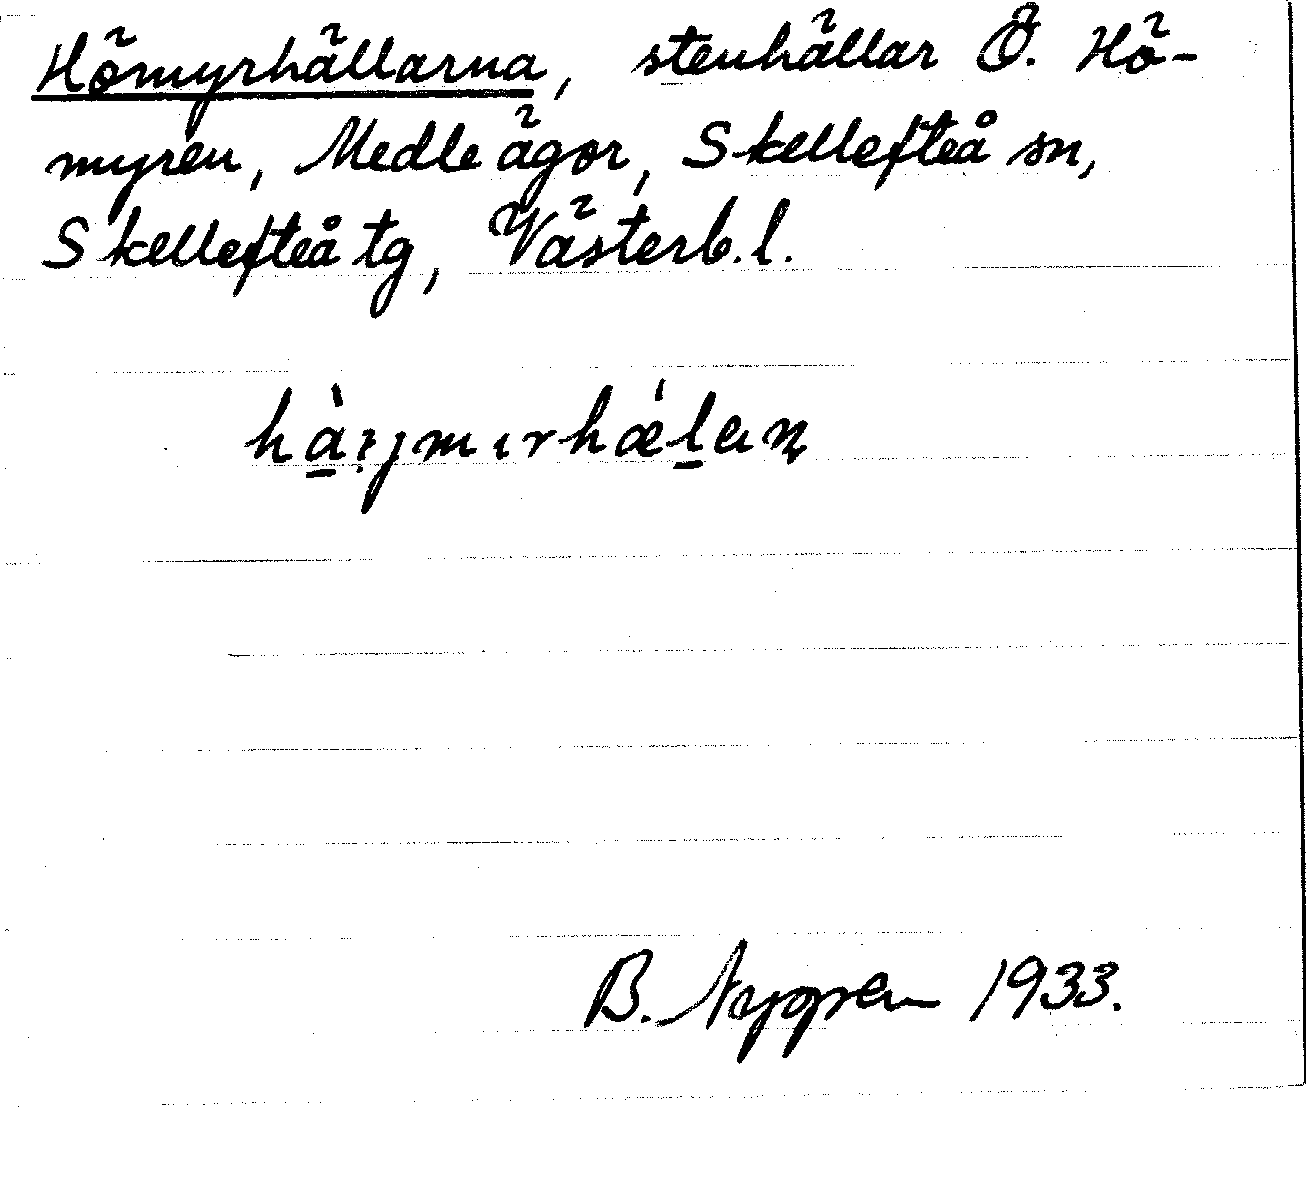 Hömyrhällarna, stenhällar Ö. Hö-
myren, Medle ägor, Skellefteå sn,
Skellefteå tg, Västerb.l.
B. 1933.